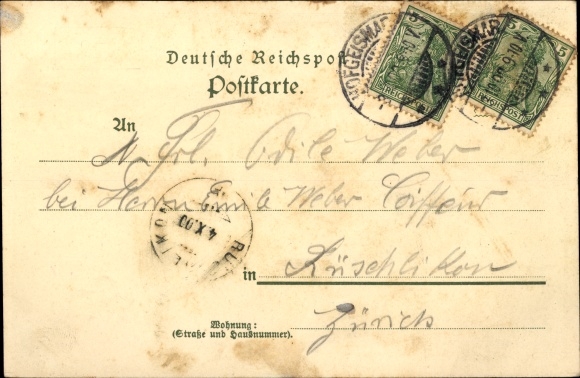 Deutsche Reichspost
Postkarte.
HOFGEISMAR
5 5
REICHSPOST
HOFGEISMAR
5 5
REICHSPOST
An
Frl. Odile Weber
bei Herrn Emile Weber Coiffeur
4.X.00
in Rüschlikon
Zürich
Wohnung:
(Straße und Hausnummer).